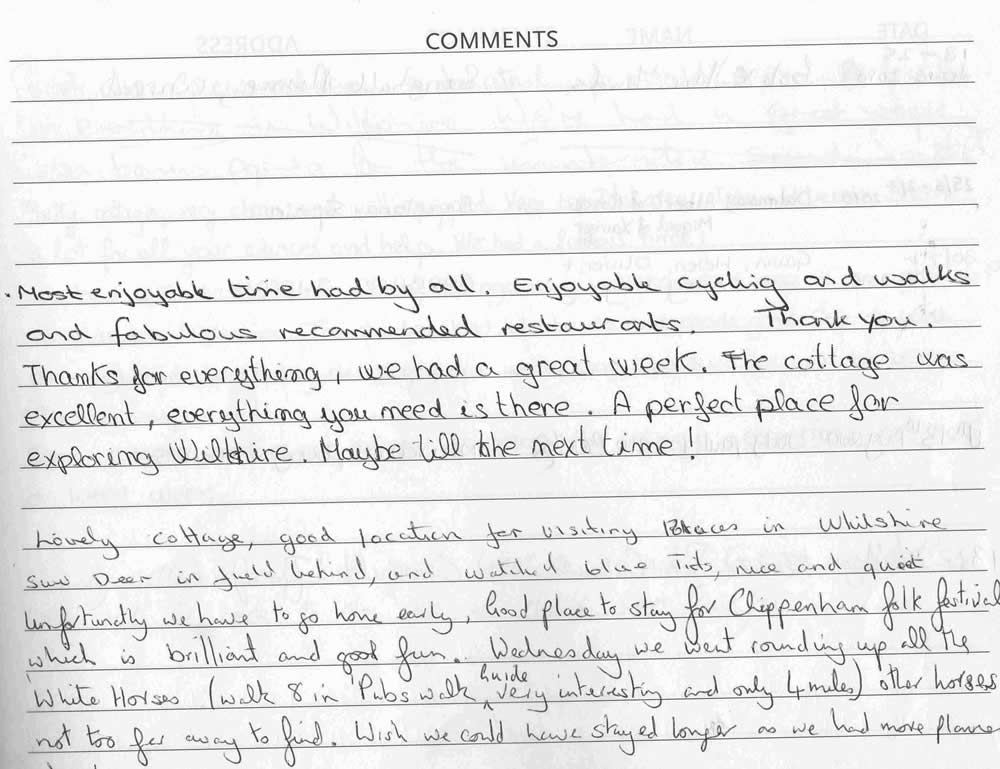 COMMENTS
Most enjoyable time had by all. Enjoyable cycling and walks
and fabulous recommended restaurants. Thank you.
Thanks for everything, we had a great week. The cottage was
excellent, everything you need is there. A perfect place for
exploring Wiltshire. Maybe till the next time!
Lovely cottage, good location for visiting Places in Whilshire
saw Deer in field behind, and watched blue Tits, nice and quiet
Unfortunatly we have to go home early, Good place to stay for Chippenham folk festival
which is brilliant and good fun. Wednesday we went rounding up all the
White Horses (walk 8 in Pubs walk Guide very interesting and only 4 miles) other horses
not too far away to find. Wish we could have stayed longer as we had more planne